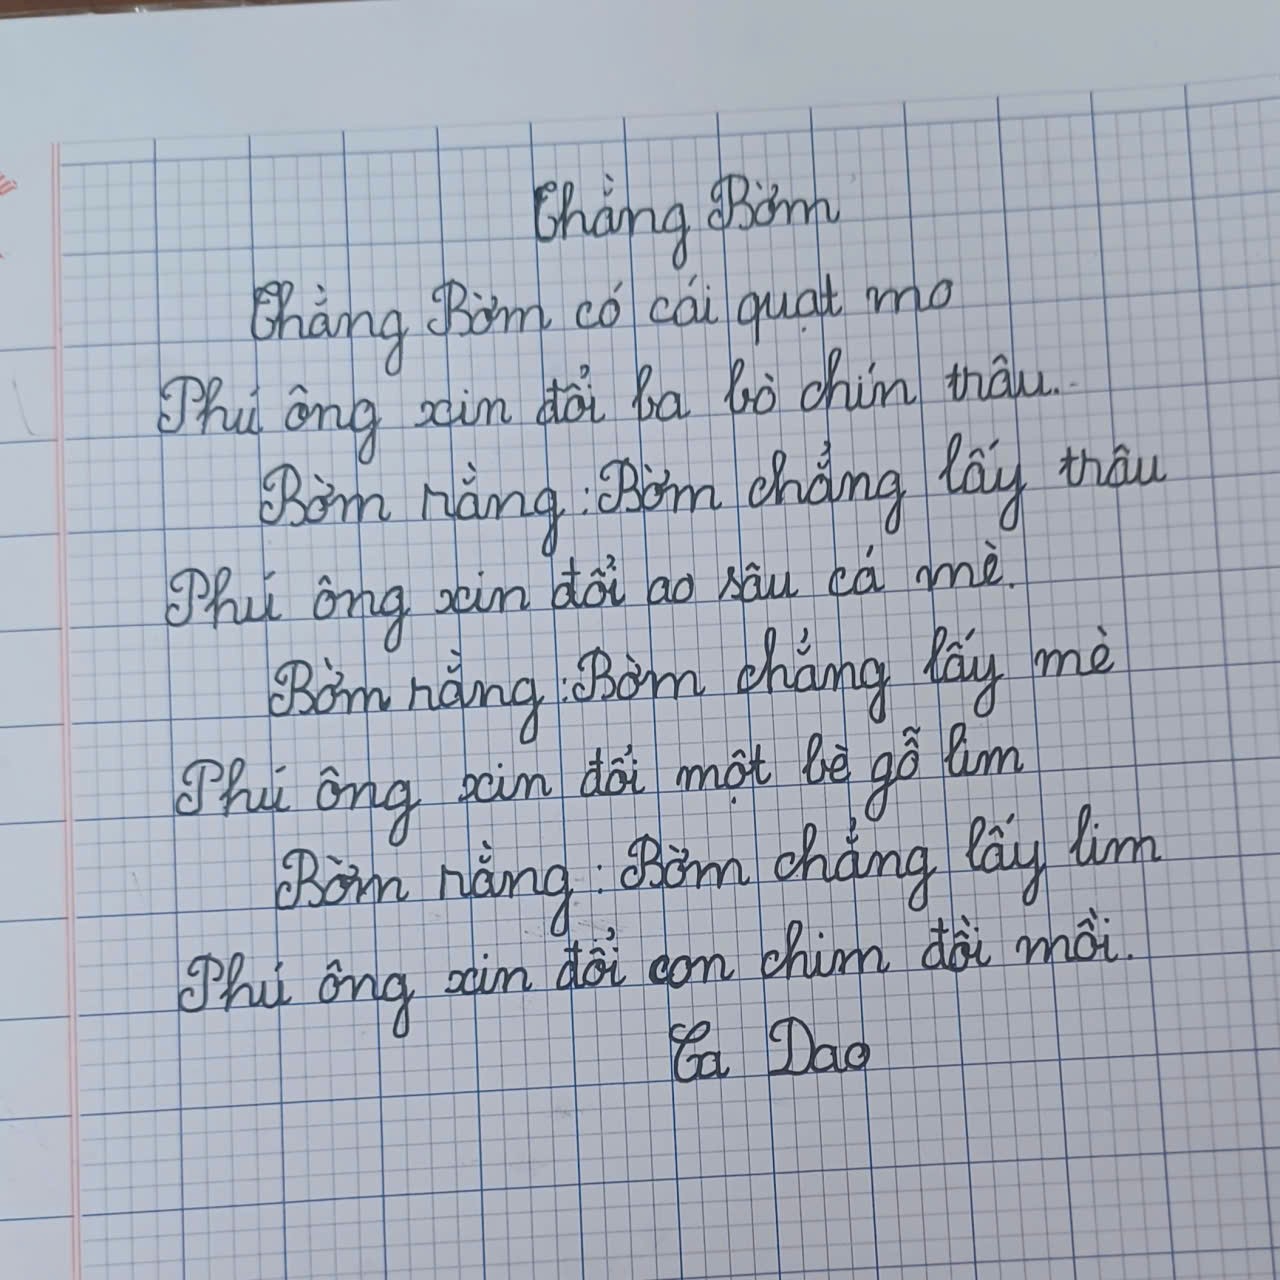 Thằng Bờm
Thằng Bờm có cái quạt mo
Phú ông xin đổi ba bò chín trâu..
Bờm rằng: Bờm chẳng lấy trâu
Phú ông xin đổi ao sâu cá mè.
Bờm rằng: Bờm chẳng lấy mè
Phú ông xin đổi một bè gỗ lim
Bờm rằng: Bờm chẳng lấy lim
Phú ông xin đổi con chim đồi mồi.
Ca Dao